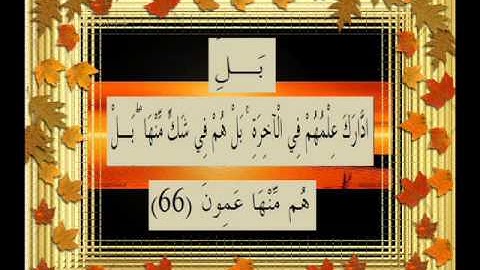 بَـــلِ
ادَّارَكَ عِلْمُهُمْ فِي الْآخِرَةِ ۚ بَلْ هُمْ فِي شَكٍّ مِّنْهَا ۖ بَـــلْ
هُم مِّنْهَا عَمِونَ (66)